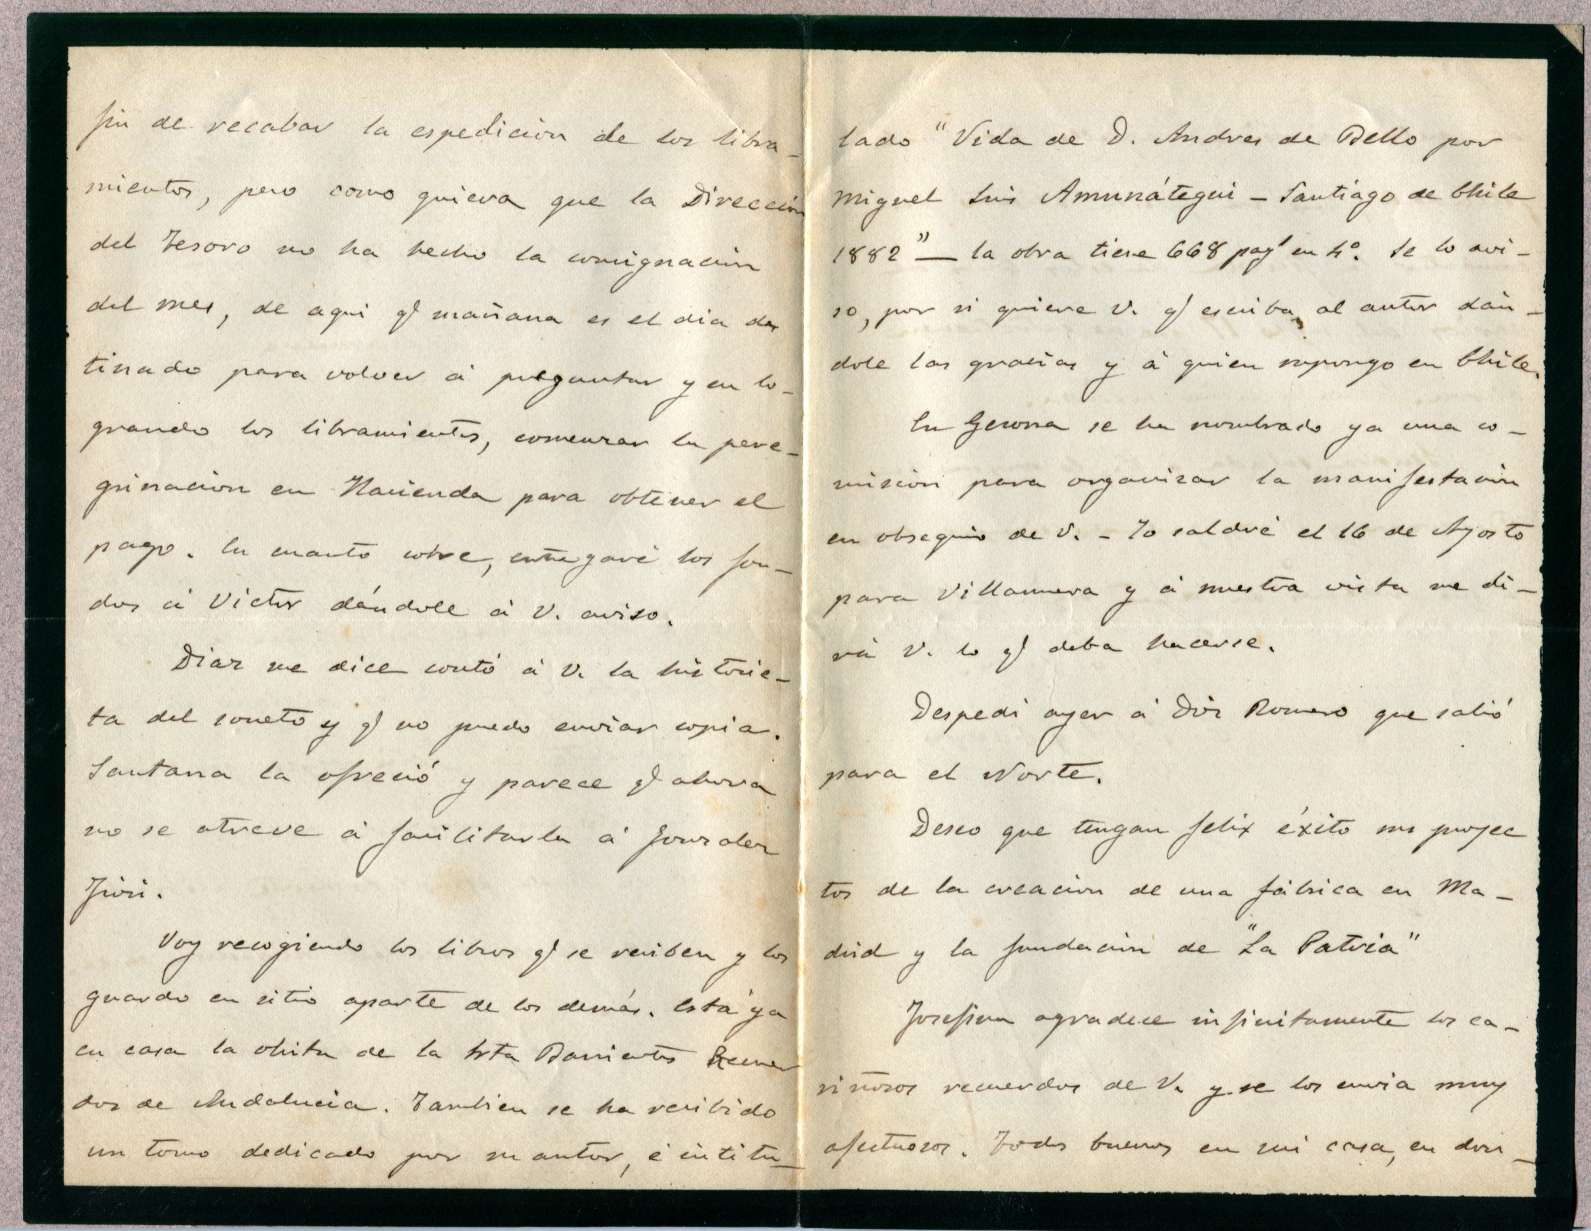 fin de recabar la espedición de los libra-
mientos, pero como quiera que la Dirección
del Tesoro no ha hecho la consignación
del mes, de aqui q̃ mañana es el dia des
tinado para volver á preguntar y en lo-
grando los libramientos, comenzar la pere-
grinacion en Hacienda para obtener el
pago. En cuanto cobre, entregaré los fon-
dos á Victor dándole á V. aviso.
Diaz me dice contó á V. la historie-
ta del soneto y q̃ no puedo enviar copia.
Santana la ofreció y parece q̃ ahora
no se atreve á facilitarla á Gonzalez
Fiori.
Voy recogiendo los libros q̃ se reciben y los
guardo en sitio aparte de los demás. Está ya
en casa la obita de la Srta Barrientos Recuer
dos de Andalucia. Tambien se ha recibido
un tomo dedicado por su autor, é intitu-
lado "Vida de D. Andres de Bello por
Miguel Luis Amunátegui - Santiago de Chile
1882" — la obra tiene 668 pags en 4º. Se lo avi-
so, por si quiere V. q̃ escriba al autor dán-
dole las gracias y á quien supongo en Chile.
En Gerona se ha nombrado ya una co-
mision para organizar la manifestación
en obsequio de V. - Yo saldré el 16 de Agosto
para Villanueva y á nuestra vista me di-
rá V. lo q̃ deba hacerse.
Despedi ayer á Romero que salió
para el Norte.
Deseo que tengan felix éxito sus proyec
tos de la creacion de una fábrica en Ma-
drid y la fundación de "La Patria"
Josefina agradece infinitamente los ca-
riñosos recuerdos de V. y se los envia muy
afectuosos. Todos buenos en mi casa, en don-